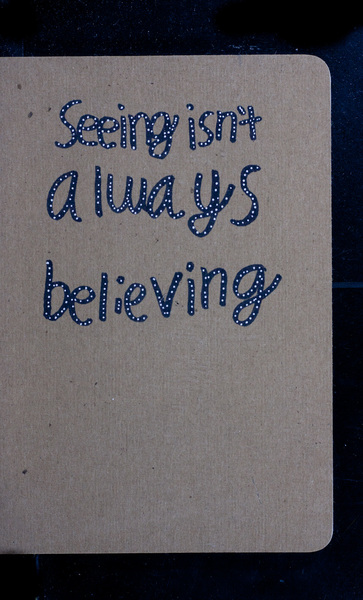 Seeing isn't
always
believing